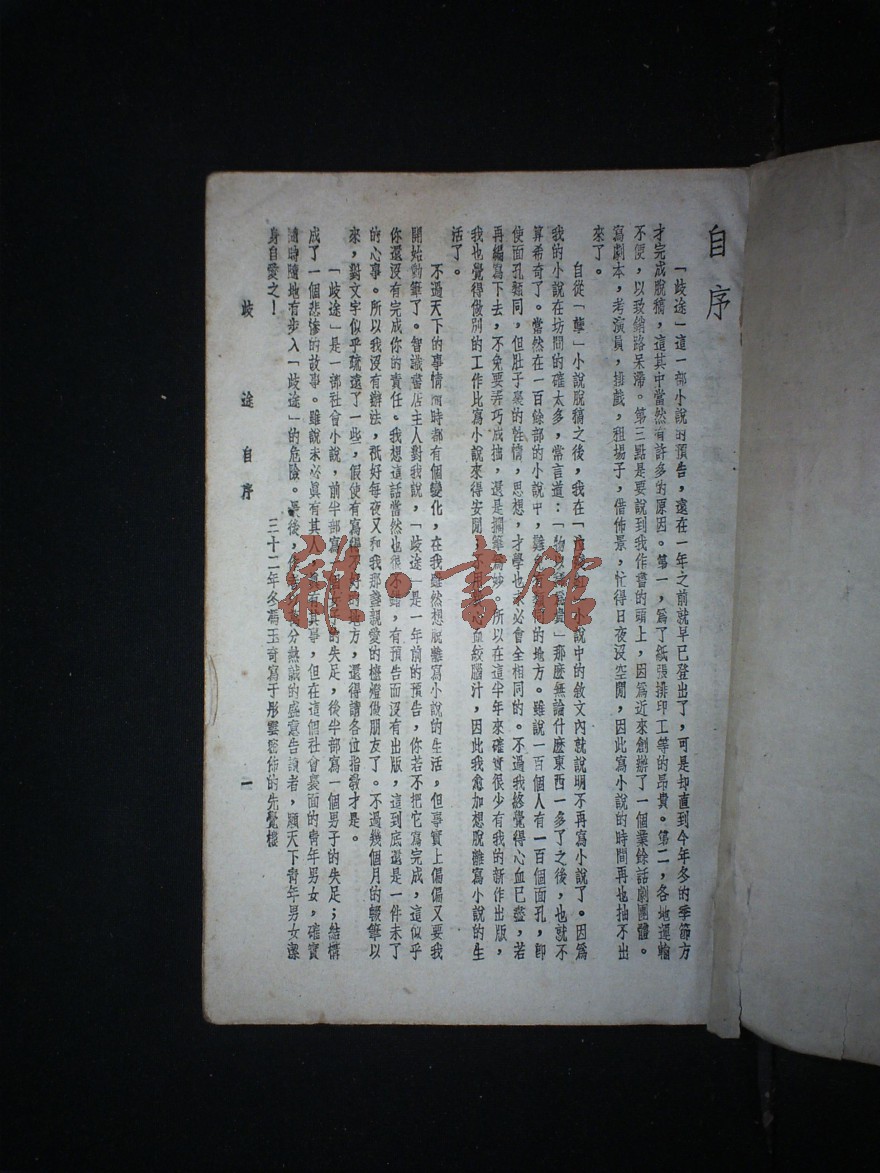 自序
「歧途」這一部小說的預告，遠在一年之前就早已登出了，可是却直到今年冬的季節方
才完成脫稿，這其中當然有許多的原因。第一，爲了紙張排印工等的昂貴。第二，各地運輸
不便，以致銷路呆滯。第三點是要說到我作書的頭上，因爲近來創辦了一個業餘話劇團體。
寫劇本，考演員，排戲，租場子，借佈景，忙得日夜沒空閒，因此寫小說的時間再也抽不出
來了。
自從「孽」小說脫稿之後，我在「 小說中的敘文內就說明不再寫小說了。因爲
我的小說在坊間的確太多，常言道：「物 貴」那麽無論什麽東西一多了之後，也就不
算希奇了。當然在一百餘部的小說中，難 的地方。雖說一百個人有一百個面孔，卽
使面孔類同，但肚子裏的性情，思想，才學也未必會全相同的。不過我終覺得心血已盡，若
再編寫下去，不免要弄巧成拙，還是擱筆 妙。所以在這半年來確實很少有我的新作出版，
我也覺得做別的工作比寫小說來得安閒 用 心血絞腦汁，因此我愈加想脫離寫小說的生
活了。
不過天下的事情同時都有個變化，在我雖然想脫離寫小說的生活，但事實上偏偏又要我
開始動筆了。智識書店主人對我說，「歧途」是一年前的預告，你若不把它寫完成，這似乎
你還沒有完成你的責任。我想這話當然也很不錯，有預告而沒有出版，這到底還是一件未了
的心事。所以我沒有辦法，祇好每夜又和我那盞親愛的檯燈做朋友了。不過幾個月的輟筆以
來，對文字似乎疏遠了一些，假使有寫得不好的地方，還得請各位指敎才是。
「歧途」是一部社會小說，前半部寫一個女子的失足，後半部寫一個男子的失足；結構
成了一個悲慘的故事。雖說未必眞有其人 有其事，但在這個社會裏面的靑年男女，確實
隨時隨地有步入「歧途」的危險。最後， 分熱誠的盛意告讀者，願天下靑年男女潔
身自愛之！
三十二年冬馮玉奇寫于彤雲密佈的先覺樓
歧 途 自序 一
雜·書館